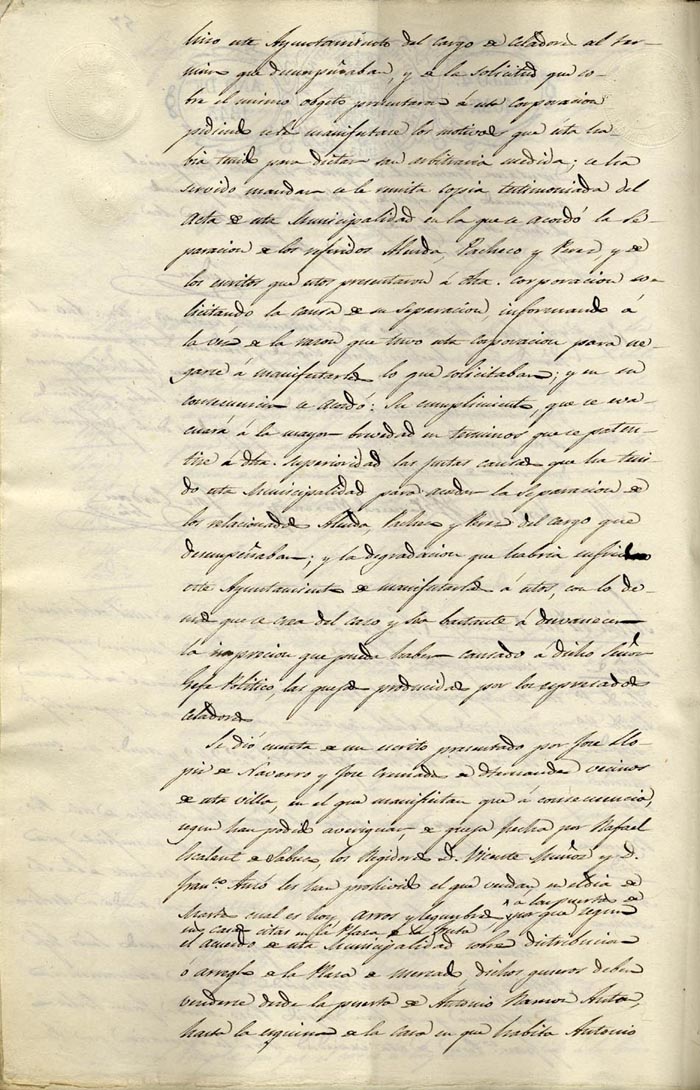 hizo este Ayuntamiento del cargo de Celadores al ter-
mino que desempeñaban, y de la solicitud que so-
bre el mismo objeto presentaron á esta corporacion
pidiendo se le manifestase los motivos que esta ha-
bia tenido para dictar tan arbitraria medida; se ha
servido mandar se le remita copia testimoniada del
Acta de esta Municipalidad en la que se acordó la Se-
paracion de los referidos Pacheco y Perez, y de
los escritos que estos presentaron á dha. corporacion so-
licitando la causa de su Separacion informando á
la vez de la razon que tuvo esta corporacion para ne-
garse á manifestarles lo que solicitaban; y en su
consecuencia se acordó: Su cumplimiento, que se eva-
cuará á la mayor brevedad en terminos que se paten-
tize á dha. Superioridad las justas causas que ha teni-
do esta Municipalidad para acordar la Separacion de
los relacionados y Perez del cargo que
desempeñaban; y la degradacion que habria
este Ayuntamiento de manifestarles á estos, con lo de-
mas que se crea del caso y sea bastante á desvanecer
la impresion que pueda haber causado á dicho Señor
Gefe Politico, las quejas producidas por los espresados
Celadores
Se dió cuenta de un escrito presentado por Jose Llo-
pis de Navarro y Jose Cremades de Hernandez vecinos
de esta villa, en el que manifiestan que á consecuencia,
segun han podido averiguar, de queja hecha por Rafael
de los Regidores D. Vicente Muñoz y D.
Franco. Aznó les han prohivido el que vendan en el dia de
Martes cual es hoy, arros y legumbres ^ a las puertas de
sus casas citas en la Plaza de la fruta por que segun
el acuerdo de esta Municipalidad sobre distribucion
o arreglo de la Plaza de mercado dichos generos deben
venderse desde la puerta de Antonio Ramon
hasta la esquina de la casa en que habita Antonio